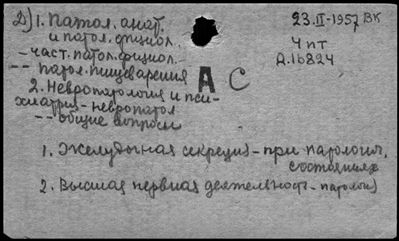 Д) 1. Патол. анат.
и патол. физиол.
23.II-1957 ВК
- част. патол. физиол.
4 пт
Д.16824
-- патол. пищеварения
А С
2. Невропатология и пси-
хиатрия - невропатол
-- общие вопросы
1. Желудочная секреция - при патологич.
состояниях
2. Высшая нервная деятельность - патология